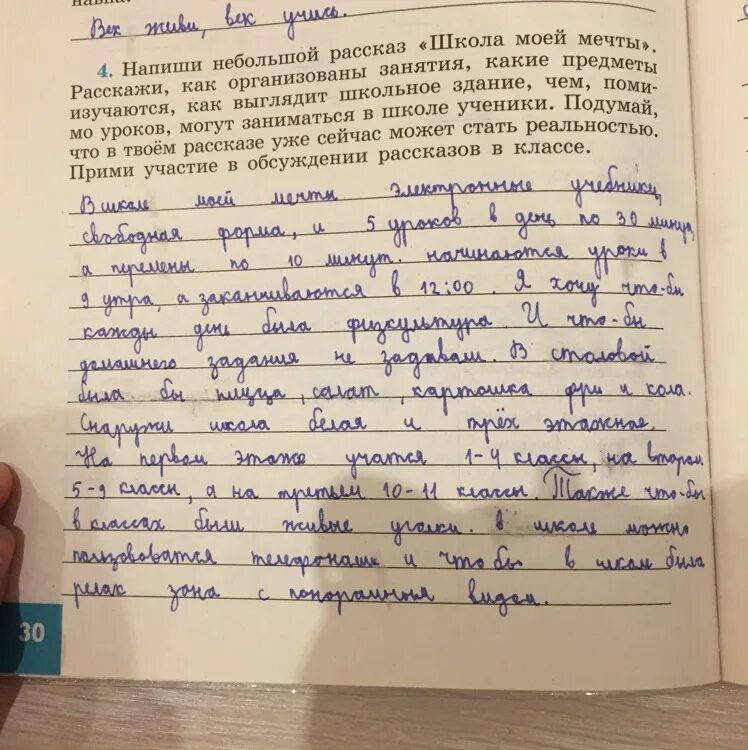 Век живи, век учись.
4. Напиши небольшой рассказ «Школа моей мечты».
Расскажи, как организованы занятия, какие предметы
изучаются, как выглядит школьное здание, чем, поми-
мо уроков, могут заниматься в школе ученики. Подумай,
что в твоём рассказе уже сейчас может стать реальностью.
Прими участие в обсуждении рассказов в классе.
В школе моей мечты электронные учебники,
свободная форма, и 5 уроков в день по 30 минут,
а перемены по 10 минут. начинаются уроки в
9 утра, а заканчиваются в 12:00. Я хочу что-бы
кажды день была физкультура. И что-бы
домашнего задания не задавали. В столовой
была бы пицца, салат, картошка фри и кола.
Снаружи школа белая и трёх этажная.
На первом этаже учатся 1-4 классы, на втором
5-9 классы, а на третьем 10-11 классы. Также что-бы
в классах были живые уголки. в школе можно
пользоватся телефонами и что бы в школе была
релак зона с понорамным видом.
30